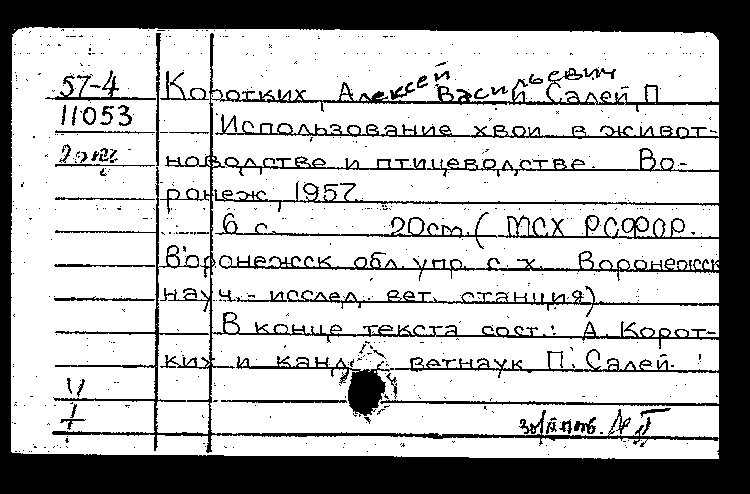 57-4 Коротких, Алексей Васильевич и Салей, П
11053 Использование хвои в живот-
новодстве и птицеводстве. Во-
ронеж, 1957.
6 с. 20см. (МСХ РСФСР.
Воронежск. обл. упр. с. х. Воронежск
науч.-исслед. вет. станция).
В конце текста сост.: А. Корот-
ких и канд. ветнаук П. Салей.